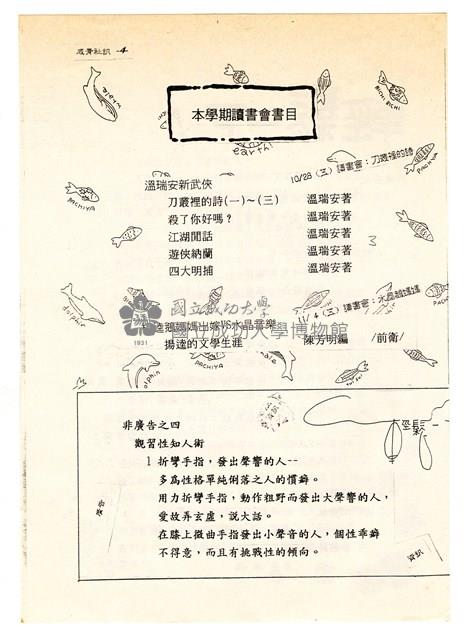 成青社訊 -4
本學期讀書會書目
whale
BICHI BICHI
earth!
10/28 (三) 讀書會：刀叢裡的詩
PACHIYA
溫瑞安新武俠
刀叢裡的詩(一)～(三) 溫瑞安著
殺了你好嗎？ 溫瑞安著
江湖閒話 溫瑞安著
遊俠納蘭 溫瑞安著
四大明捕 溫瑞安著
PACHIYA
dolphin
國立成功大學
國立成功大學博物館
1931
11/4 (三) 讀書會：水晶鵝媽媽
鵝媽媽出嫁VS水晶音樂
楊逵的文學生涯 陳芳明編 /前衛/
dolphin
PACHIYA
whale
PACHIYA
非廣告之四
觀習性知人術
1 折彎手指，發出聲響的人--
多為性格單純俐落之人的慣癖。
用力折彎手指，動作粗野而發出大聲響的人，
愛故弄玄虛，說大話。
在膝上微曲手指發出小聲音的人，個性乖癖
不得意，而且有挑戰性的傾向。
輕鬆
廣告
資訊